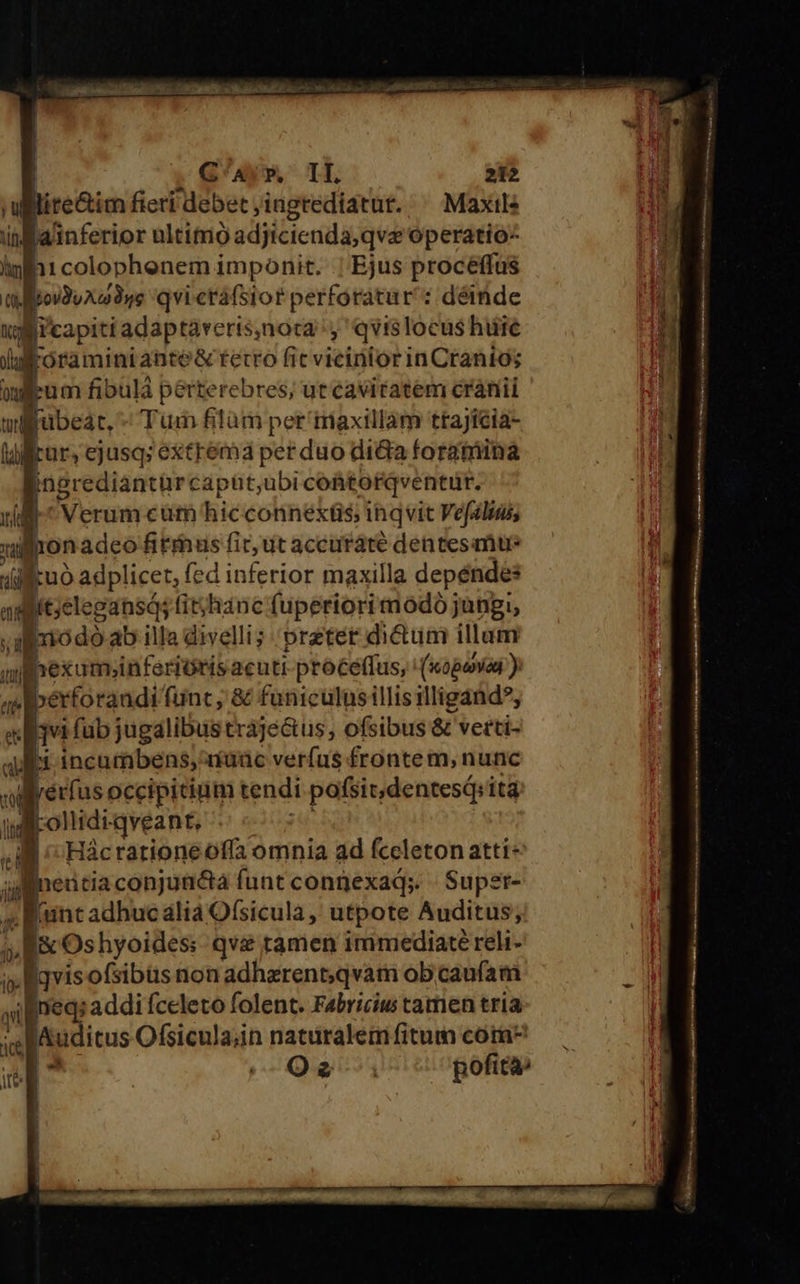 CAP. II. 212
directim fieri debet, ingrediatur. Maxil-
la inferior ultimò adjicienda, qvæ operatio-
ni colophonem imponit. Ejus processus
κονδυλώδης qvi crassior perforatur: deinde
capiti adaptaveris, nota, qvis locus huic
foramini ante & retro sit vicinior in Cranio;
eum fibulâ perterebres, ut cavitatem cranii
subeat. Tum filum per maxillam trajicia-
tur, ejusq; extrema per duo dicta foramina
ingrediantur caput, ubi contorqventur.
Verum cum hic connexûs, inqvit Vesalius,
non adeo firmus sit, ut accuratè dentes mu-
tuò adplicet, sed inferior maxilla depende-
at; elegansq́; sit, hanc superiori modò jungi,
modò ab illa divelli; præter dictum illum
nexum, inferioris acuti processus, (κορώναι)
perforandi sunt, & funiculus illis illigand⁹,
qvi sub jugalibus trajectus, ofsibus & verti-
ci incumbens, nunc versus frontem, nunc
versus occipitium tendi possit, dentesq́; ita
collidi qveant.
Hâc ratione ossa omnia ad sceleton atti-
nentia conjuncta sunt connexaq́;. Super-
sunt adhuc alia Ossicula, utpote Auditus,
& Os hyoides: qvæ tamen immediatè reli-
qvis ofsibus non adhærent, qvam ob causam
neq; addi sceleto solent. Fabricius tamen tria
Auditus Ossicula, in naturalem situm com-
O 2 posita